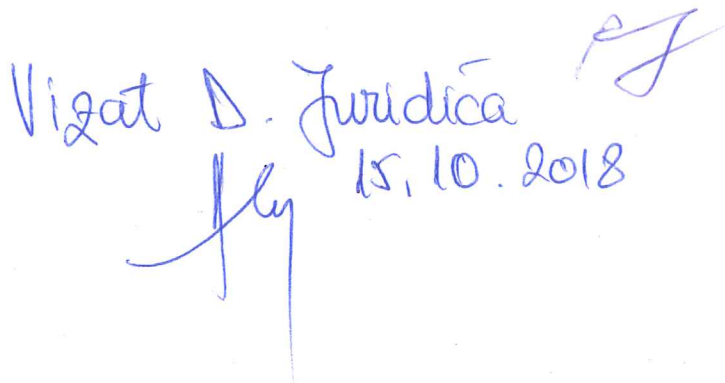 Vizat D. Juridică
15.10.2018